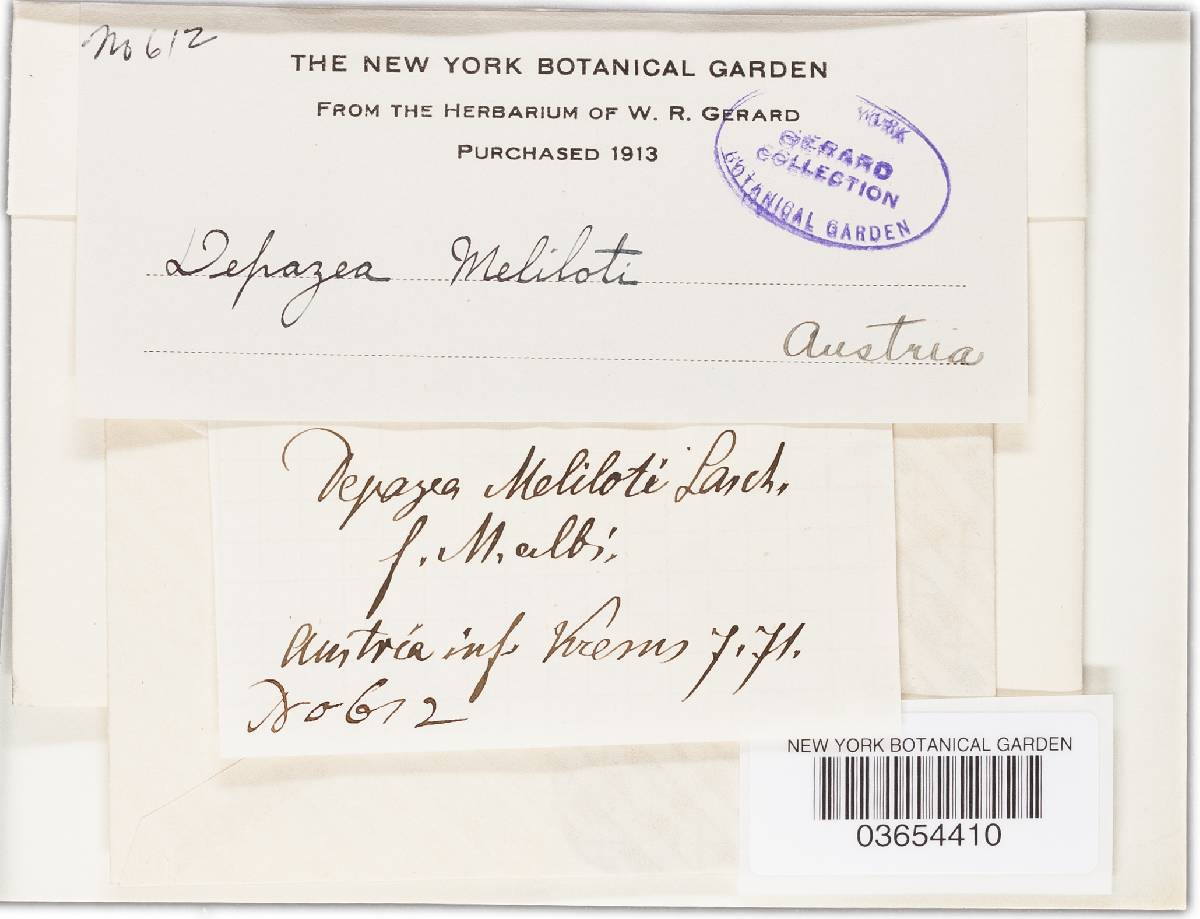 No 612
THE NEW YORK BOTANICAL GARDEN
FROM THE HERBARIUM OF W. R. GERARD
PURCHASED 1913
YORK
GERARD
COLLECTION
BOTANICAL GARDEN
Depazea Meliloti
Austria
Depazea Meliloti Lasch.
f. M. albi.
Austria inf. Krems 7.71.
No 612
NEW YORK BOTANICAL GARDEN
03654410